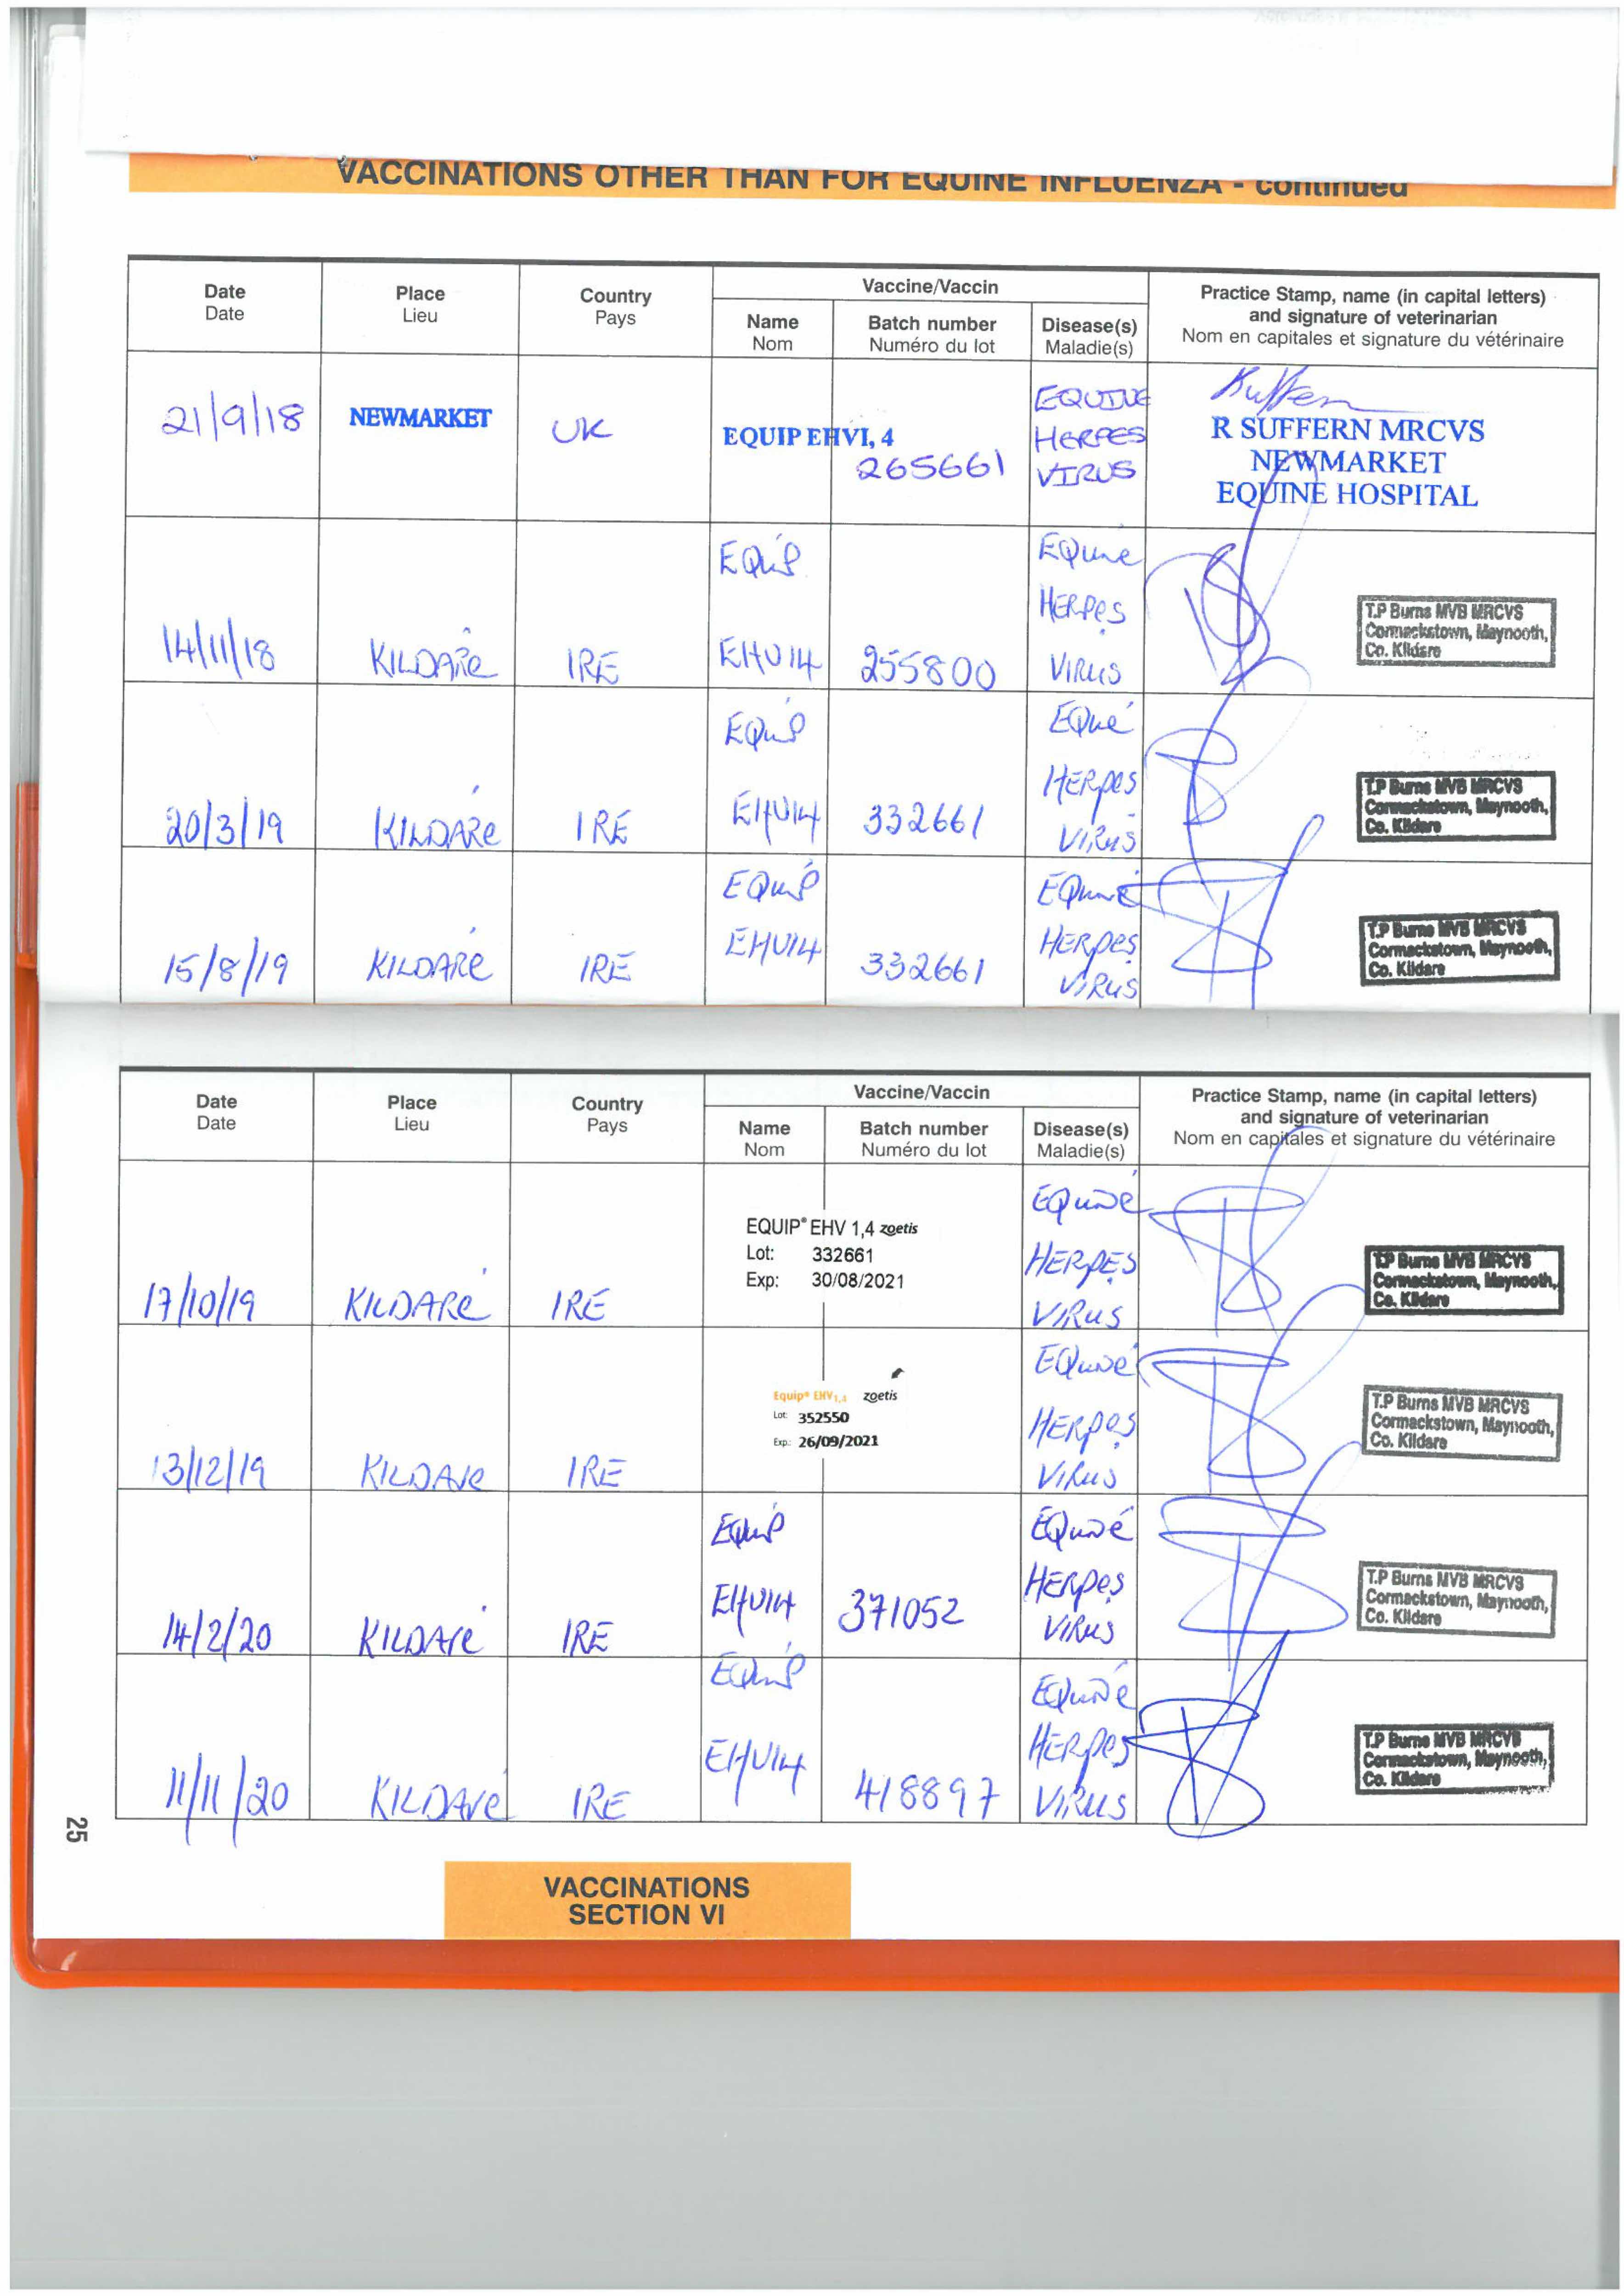 VACCINATIONS OTHER THAN FOR EQUINE INFLUENZA - continued
Date
Date
Place
Lieu
Country
Pays
Vaccine/Vaccin
Name
Nom
Batch number
Numéro du lot
Disease(s)
Maladie(s)
Practice Stamp, name (in capital letters)
and signature of veterinarian
Nom en capitales et signature du vétérinaire
21/9/18 NEWMARKET UK EQUIP EHVI, 4 265661
EQUINE
HERPES
VIRUS
Suffern
R SUFFERN MRCVS
NEWMARKET
EQUINE HOSPITAL
14/11/18 KILDARE IRE
EQUIP
EHV14 255800
EQuine
HERPES
VIRUS
T.P Burns MVB MRCVS
Cormackstown, Maynooth,
Co. Kildare
20/3/19 KILDARE IRE
EQUIP
EHV14 332661
HERPES
VIRUS
T.P Burns MVB MRCVS
Cormackstown, Maynooth,
Co. Kildare
15/8/19 KILDARE IRE
EQUIP
EHV14 332661
EQUINE
HERPES
VIRUS
T.P Burns MVB MRCVS
Cormackstown, Maynooth,
Co. Kildare
Date
Date
Place
Lieu
Country
Pays
Vaccine/Vaccin
Name
Nom
Batch number
Numéro du lot
Disease(s)
Maladie(s)
Practice Stamp, name (in capital letters)
and signature of veterinarian
Nom en capitales et signature du vétérinaire
17/10/19 KILDARE IRE
EQUIP® EHV 1,4 zoetis
Lot: 332661
Exp: 30/08/2021
EQUINE
HERPES
VIRUS
T.P Burns MVB MRCVS
Cormackstown, Maynooth,
Co. Kildare
13/12/19 KILDARE IRE
Equip® EHV1,4 zoetis
Lot: 352550
Exp.: 26/09/2021
EQUINE
HERPES
VIRUS
T.P Burns MVB MRCVS
Cormackstown, Maynooth,
Co. Kildare
14/2/20 KILDARE IRE
EQUIP
EHV14 371052
EQUINE
HERPES
VIRUS
T.P Burns MVB MRCVS
Cormackstown, Maynooth,
Co. Kildare
11/11/20 KILDARE IRE
EQUIP
EHV14 418897
EQUINE
HERPES
VIRUS
T.P Burns MVB MRCVS
Cormackstown, Maynooth,
Co. Kildare
25
VACCINATIONS
SECTION VI